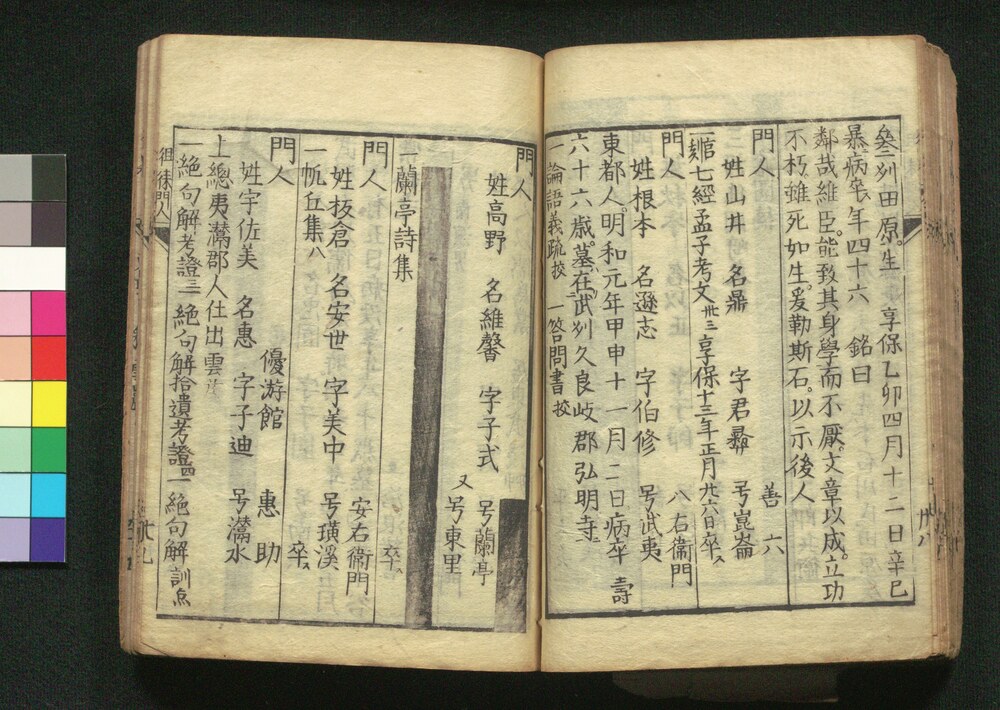 叄刕田原。生享保乙卯四月十二日辛巳
暴病卒。年四十六 銘曰
鄰哉維臣。能致其身學而不厭。文章以成。立功
不朽雖死如生。爰勒斯石。以示後人
門人 善六
姓山井 名鼎 字君彝 号崑崙
一 七經孟子考文 卅三 享保十三年正月廿六日卒
門人 八右衞門
姓根本 名遜志 字伯修 号武夷
東都人。明和元年甲申十一月二日病卒 壽
六十六歳。墓在武刕久良岐郡弘明寺。
一論語義疏校 一答問書校
門人
姓高野 名維馨 字子式 号蘭亭
又号東里
一蘭亭詩集
門人 安右衞門 卒
姓板倉 名安世 字美中 号璜溪
一帆丘集八
門人 優游館 惠助
姓宇佐美 名惠 字子迪 号灊水
上總夷灊郡人仕出雲
一絶句解考證三 一絶句解拾遺考證四 一絶句解訓点
徂徠門人